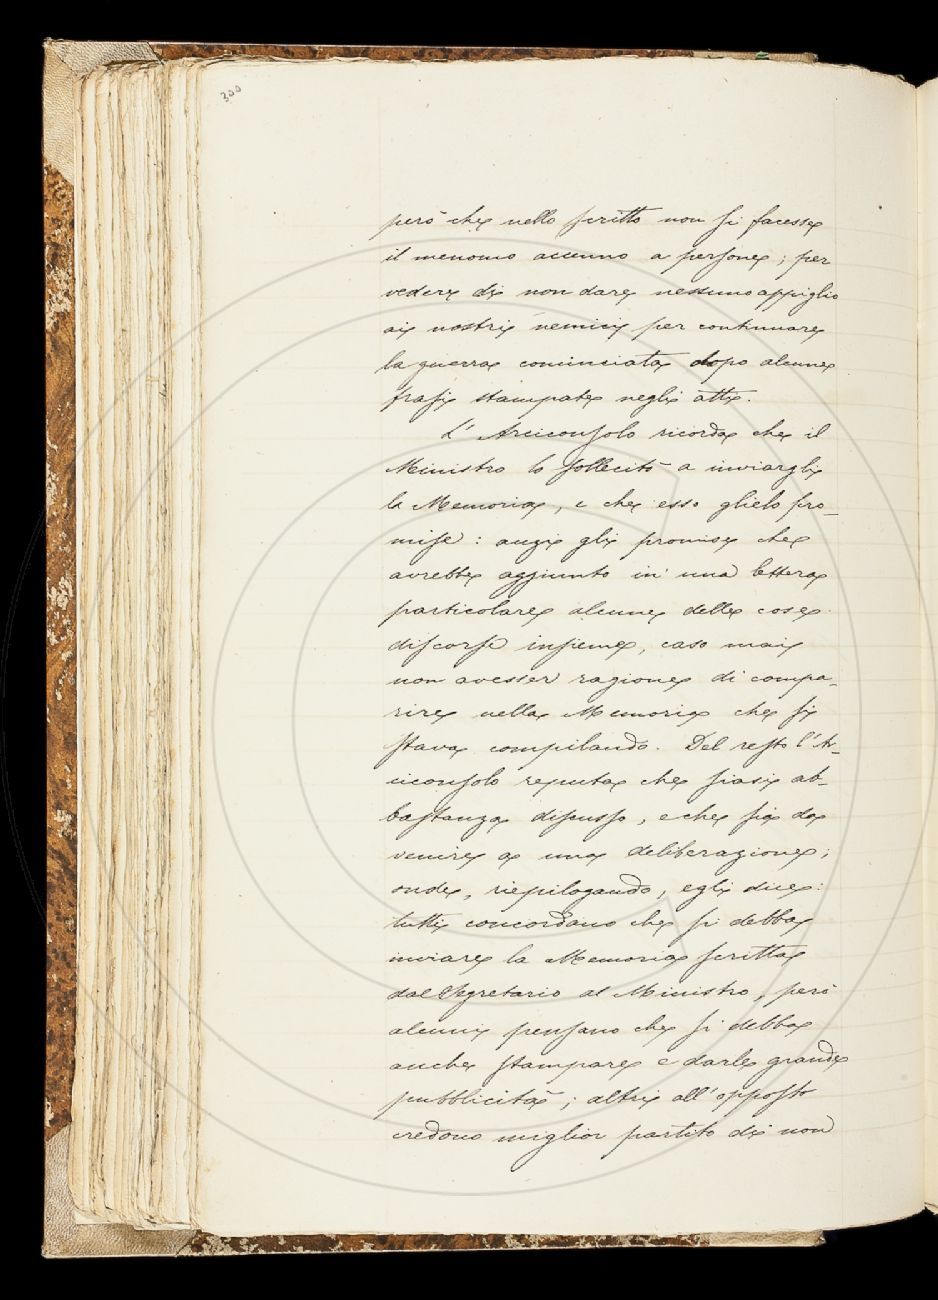 300
però che nello scritto non si facesse
il menomo accenno a persone; per
vedere di non dare nessuno appiglio
ai nostri nemici per continuare
la guerra cominciata dopo alcune
frasi stampate negli atti.
L' Arciconsolo ricorda che il
Ministro lo sollecitò a inviargli
la Memoria, e che esso glielo pro-
mise: anzi gli promise che
avrebbe aggiunto in una lettera
particolare alcune delle cose
discorse insieme, caso mai
non avesser ragione di compa-
rire nella Memoria che si
stava compilando. Del resto l'Ar-
ciconsolo reputa che siasi ab-
bastanza discusso, e che sia da
venire a una deliberazione;
onde, riepilogando, egli dice:
tutti concordano che si debba
inviare la Memoria scritta
dal Segretario al Ministro, però
alcuni pensano che si debba
anche stampare e darle grande
pubblicità; altri all'opposto
credono miglior partito di non